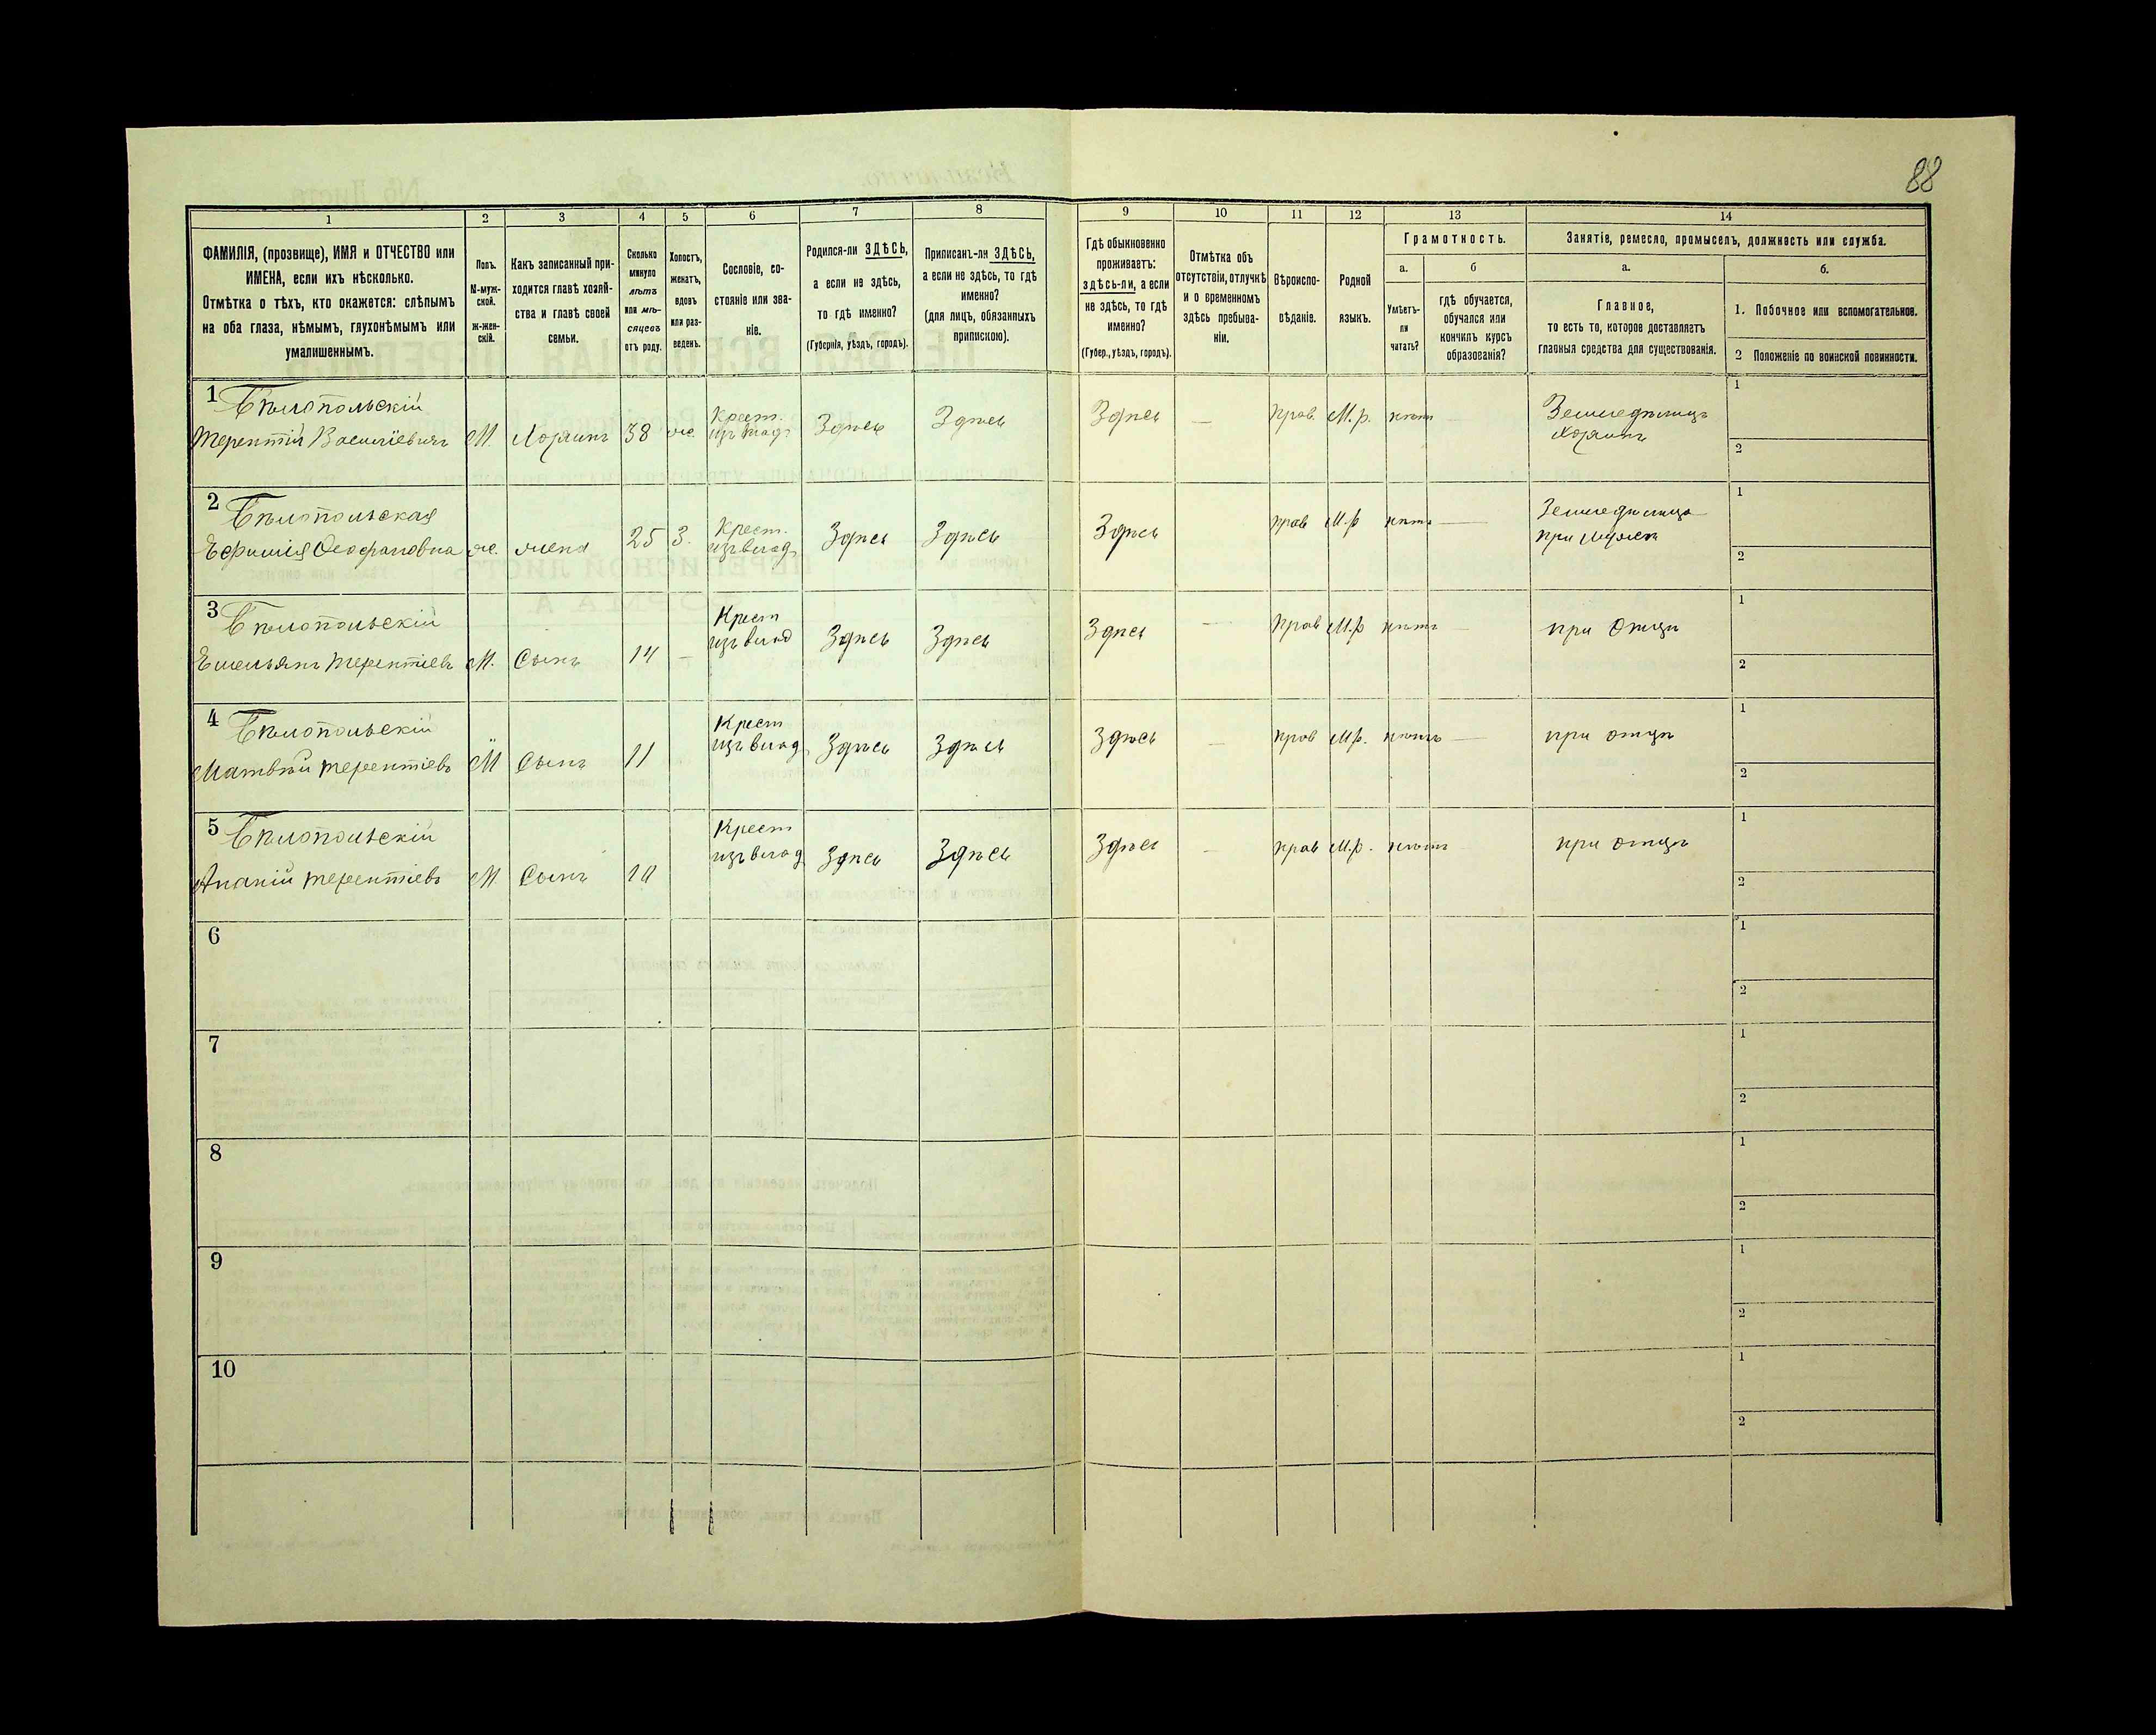 88
1 2 3 4 5 6 7 8 9 10 11 12 13 14
ФАМИЛІЯ, (прозвище), ИМЯ и ОТЧЕСТВО или
ИМЕНА, если ихъ нѣсколько.
Отмѣтка о тѣхъ, кто окажется: слѣпымъ
на оба глаза, нѣмымъ, глухонѣмымъ или
умалишеннымъ.
Полъ.
М-муж-
ской.
ж-жен-
скій.
Какъ записанный при-
ходится главѣ хозяй-
ства и главѣ своей
семьи.
Сколько
минуло
лѣтъ
или мѣ-
сяцевъ
отъ роду.
Холостъ,
женатъ,
вдовъ
или раз-
веденъ.
Сословіе, со-
стояніе или зва-
ніе.
Родился-ли ЗДѢСЬ,
а если не здѣсь,
то гдѣ именно?
(Губернія, уѣздъ, городъ).
Приписанъ-ли ЗДѢСЬ,
а если не здѣсь, то гдѣ
именно?
(для лицъ, обязанныхъ
припискою).
Гдѣ обыкновенно
проживаетъ:
здѣсь-ли, а если
не здѣсь, то гдѣ
именно?
(Губер., уѣздъ, городъ).
Отмѣтка объ
отсутствіи, отлучкѣ
и о временномъ
здѣсь пребыва-
ніи.
Вѣроиспо-
вѣданіе.
Родной
языкъ.
Грамотность.
а.
Умѣетъ-
ли
читать?
б
гдѣ обучается,
обучался или
кончилъ курсъ
образованія?
Занятіе, ремесло, промыселъ, должность или служба.
а.
Главное,
то есть то, которое доставляетъ
главныя средства для существованія.
б.
1. Побочное или вспомогательное.
2 Положеніе по воинской повинности.
1 Бѣлопольскій
Терентій Василіевичъ М. Хозяинъ 38 ж. Крест. изъ влад. Здѣсь Здѣсь Здѣсь — Прав. М.р. нѣтъ — Земледѣлецъ
Хозяинъ
1
2
2 Бѣлопольская
Ефимія Феофановна ж. жена 25 З. Крест. изъ влад. Здѣсь Здѣсь Здѣсь прав М.р нѣтъ — Земледѣлица
при мужѣ
1
2
3 Бѣлопольскій
Емельянъ Терентіевъ М. Сынъ 14 — Крест изъ влад Здѣсь Здѣсь Здѣсь — Прав М.р нѣтъ — при Отцѣ
1
2
4 Бѣлопольскій
Матвѣй Терентіевъ М Сынъ 11 Крест изъ влад. Здѣсь Здѣсь Здѣсь — прав М.р. нѣтъ — при отцѣ
1
2
5 Бѣлопольскій
Ананій Терентіевъ М Сынъ Крест изъ влад Здѣсь Здѣсь Здѣсь — прав М.р. нѣтъ при отцѣ
1
2
6
1
2
7
1
2
8
1
2
9
1
2
10
1
2